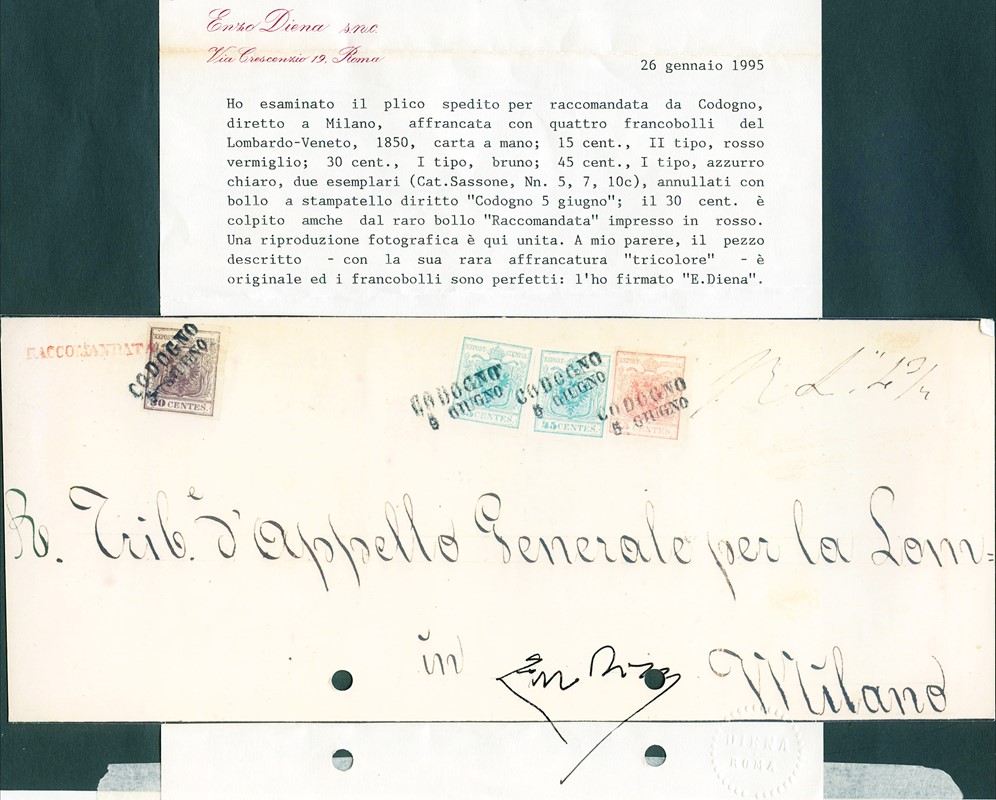 Enzo Diena s.n.c.
Via Crescenzio 19, Roma
26 gennaio 1995
Ho esaminato il plico spedito per raccomandata da Codogno,
diretto a Milano, affrancata con quattro francobolli del
Lombardo-Veneto, 1850, carta a mano; 15 cent., II tipo, rosso
vermiglio; 30 cent., I tipo, bruno; 45 cent., I tipo, azzurro
chiaro, due esemplari (Cat.Sassone, Nn. 5, 7, 10c), annullati con
bollo a stampatello diritto "Codogno 5 giugno"; il 30 cent. è
colpito amche dal raro bollo "Raccomandata" impresso in rosso.
Una riproduzione fotografica è qui unita. A mio parere, il pezzo
descritto - con la sua rara affrancatura "tricolore" - è
originale ed i francobolli sono perfetti: l'ho firmato "E.Diena".
RACCOMANDATA
CODOGNO
GIUGNO
30 CENTES.
CODOGNO
5 GIUGNO
CENTES.
CODOGNO
5 GIUGNO
45 CENTES.
CODOGNO
5 GIUGNO
CENTES.
R. Trib.e d'Appello Generale per la Lom=
in
Milano
DIENA
ROMA